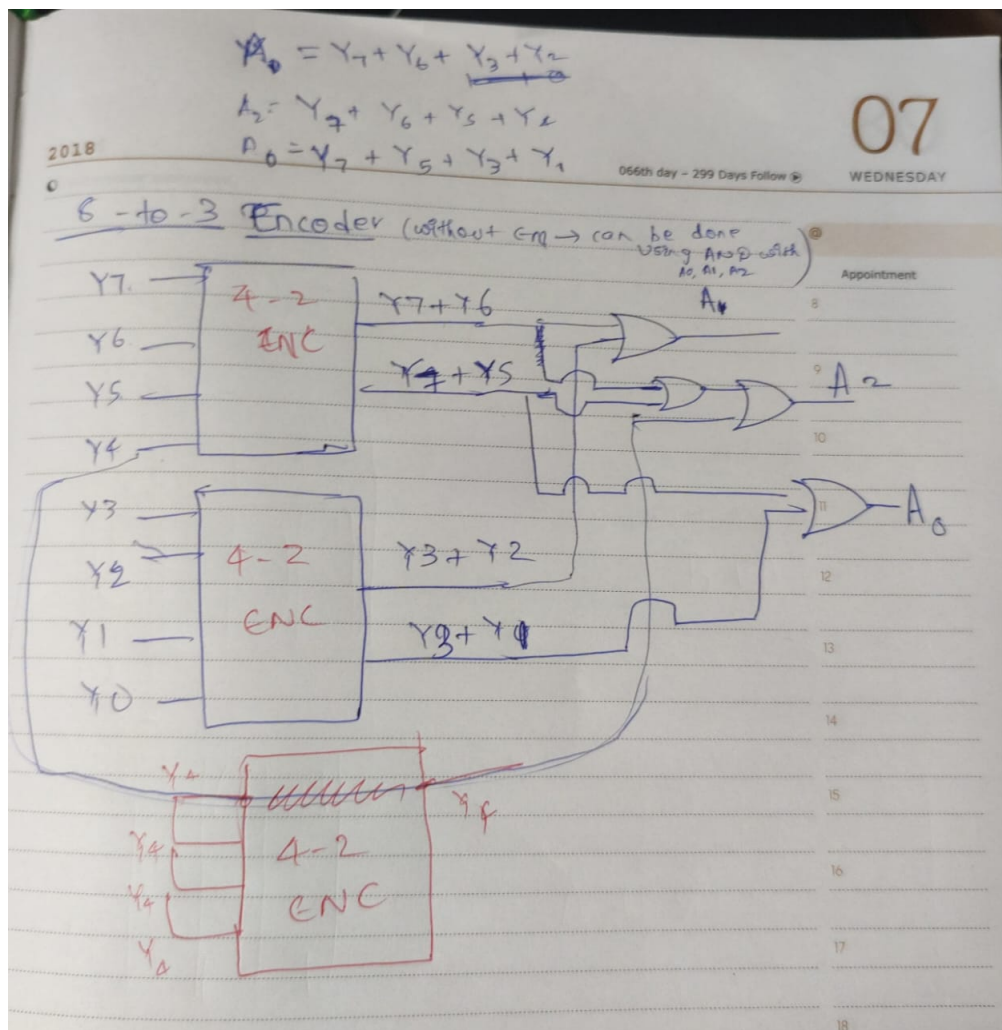 A₀ = Y7 + Y6 + Y3 + Y2
A2 = Y7 + Y6 + Y5 + Y4
A0 = Y7 + Y5 + Y3 + Y1
07
2018
066th day – 299 Days Follow
WEDNESDAY
8-to-3 Encoder (without → can be done
using AND with
A0, A1, A2)
Appointment
Y7
Y6
Y5
Y4
4-2
ENC
Y7+Y6
Y7+Y5
A1
A2
Y3
Y2
Y1
Y0
4-2
ENC
Y3+Y2
Y3+Y1
A0
Y4
Y4
Y4
Y4
4-2
ENC
Y4
8
9
10
11
12
13
14
15
16
17
18